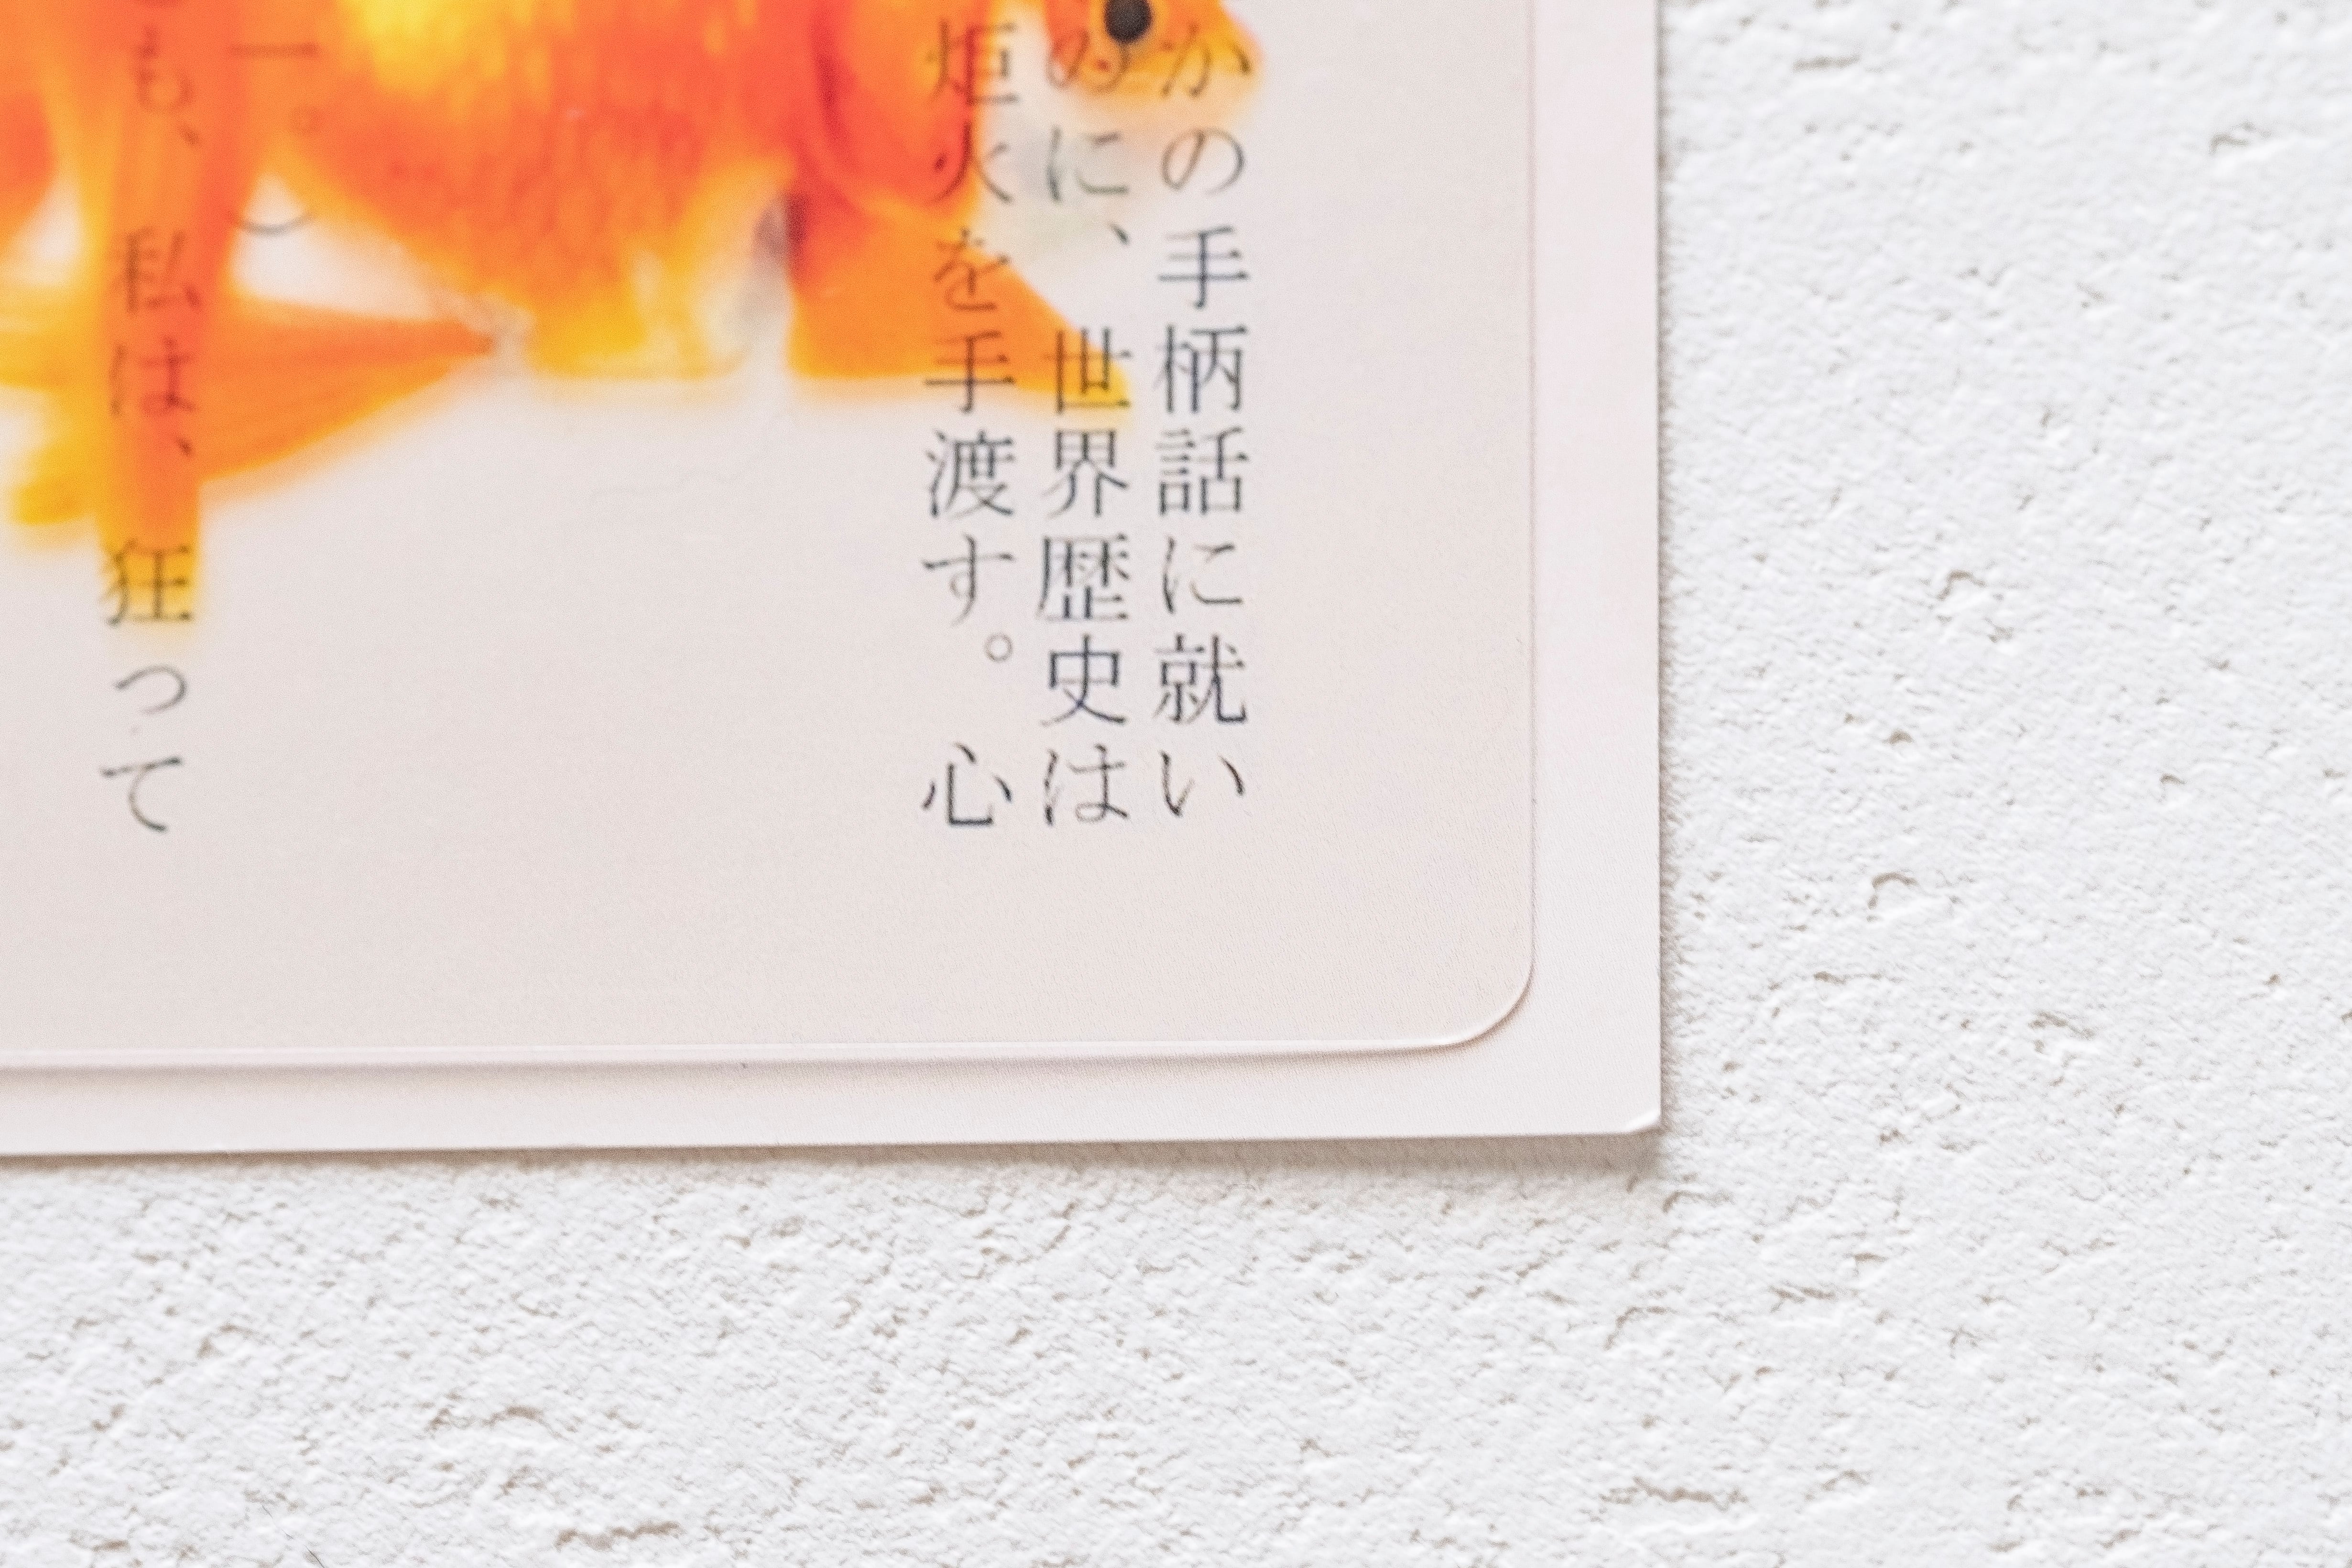 かの手柄話に就い
のに、世界歴史は
炬火を手渡す。心
一。）
も、私は、狂って